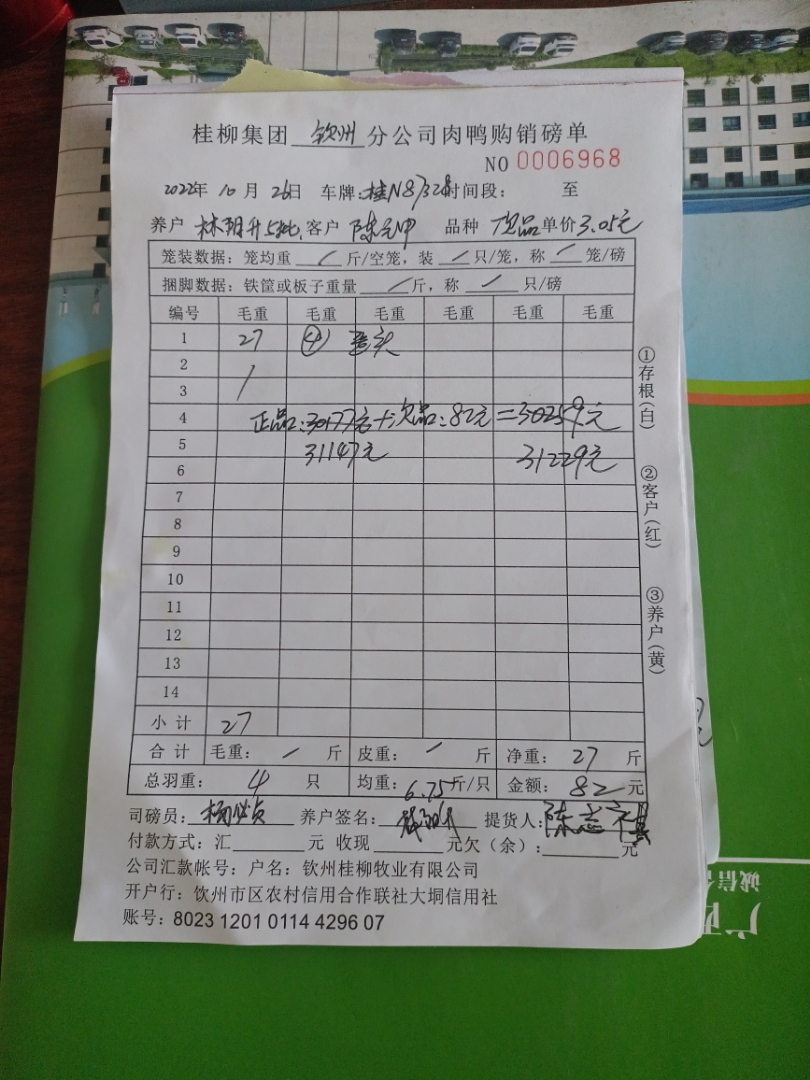 桂柳集团 钦州 分公司肉鸭购销磅单
NO 0006968
2022年 10月 26日 车牌:桂N8732 时间段: 至
养户 林明升 客户 陈 品种 次品 单价 3.05元
笼装数据:笼均重 / 斤/空笼,装 / 只/笼,称 / 笼/磅
捆脚数据:铁筐或板子重量 / 斤,称 / 只/磅
编号 毛重 毛重 毛重 毛重 毛重 毛重
1 27 ④
2
3 /
4 正品:30177元+次品:82元=30259元
5 31147元 31229元
6
7
8
9
10
11
12
13
14
小计 27
合计 毛重: / 斤 皮重: / 斤 净重: 27 斤
总羽重: 4 只 均重: 6.75斤/只 金额: 82 元
司磅员: 杨 贞 养户签名: 提货人: 陈志
付款方式:汇 元 收现 元欠(余): 元
公司汇款帐号:户名:钦州桂柳牧业有限公司
开户行:钦州市区农村信用合作联社大垌信用社
账号:8023 1201 0114 4296 07
①存根(白)
②客户(红)
③养户(黄)
诚信
广西